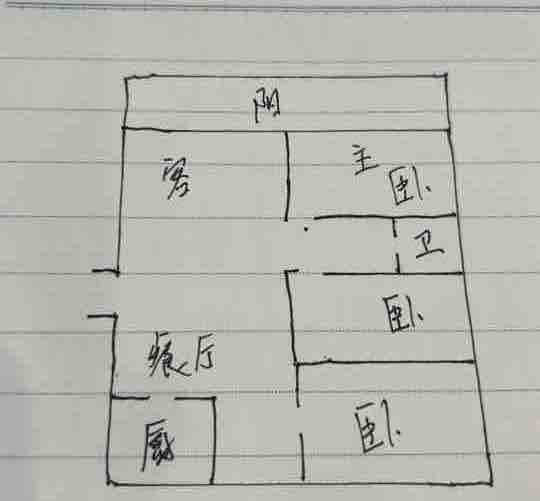 阳
客
主
卧
卫
卧
餐厅
厨
卧